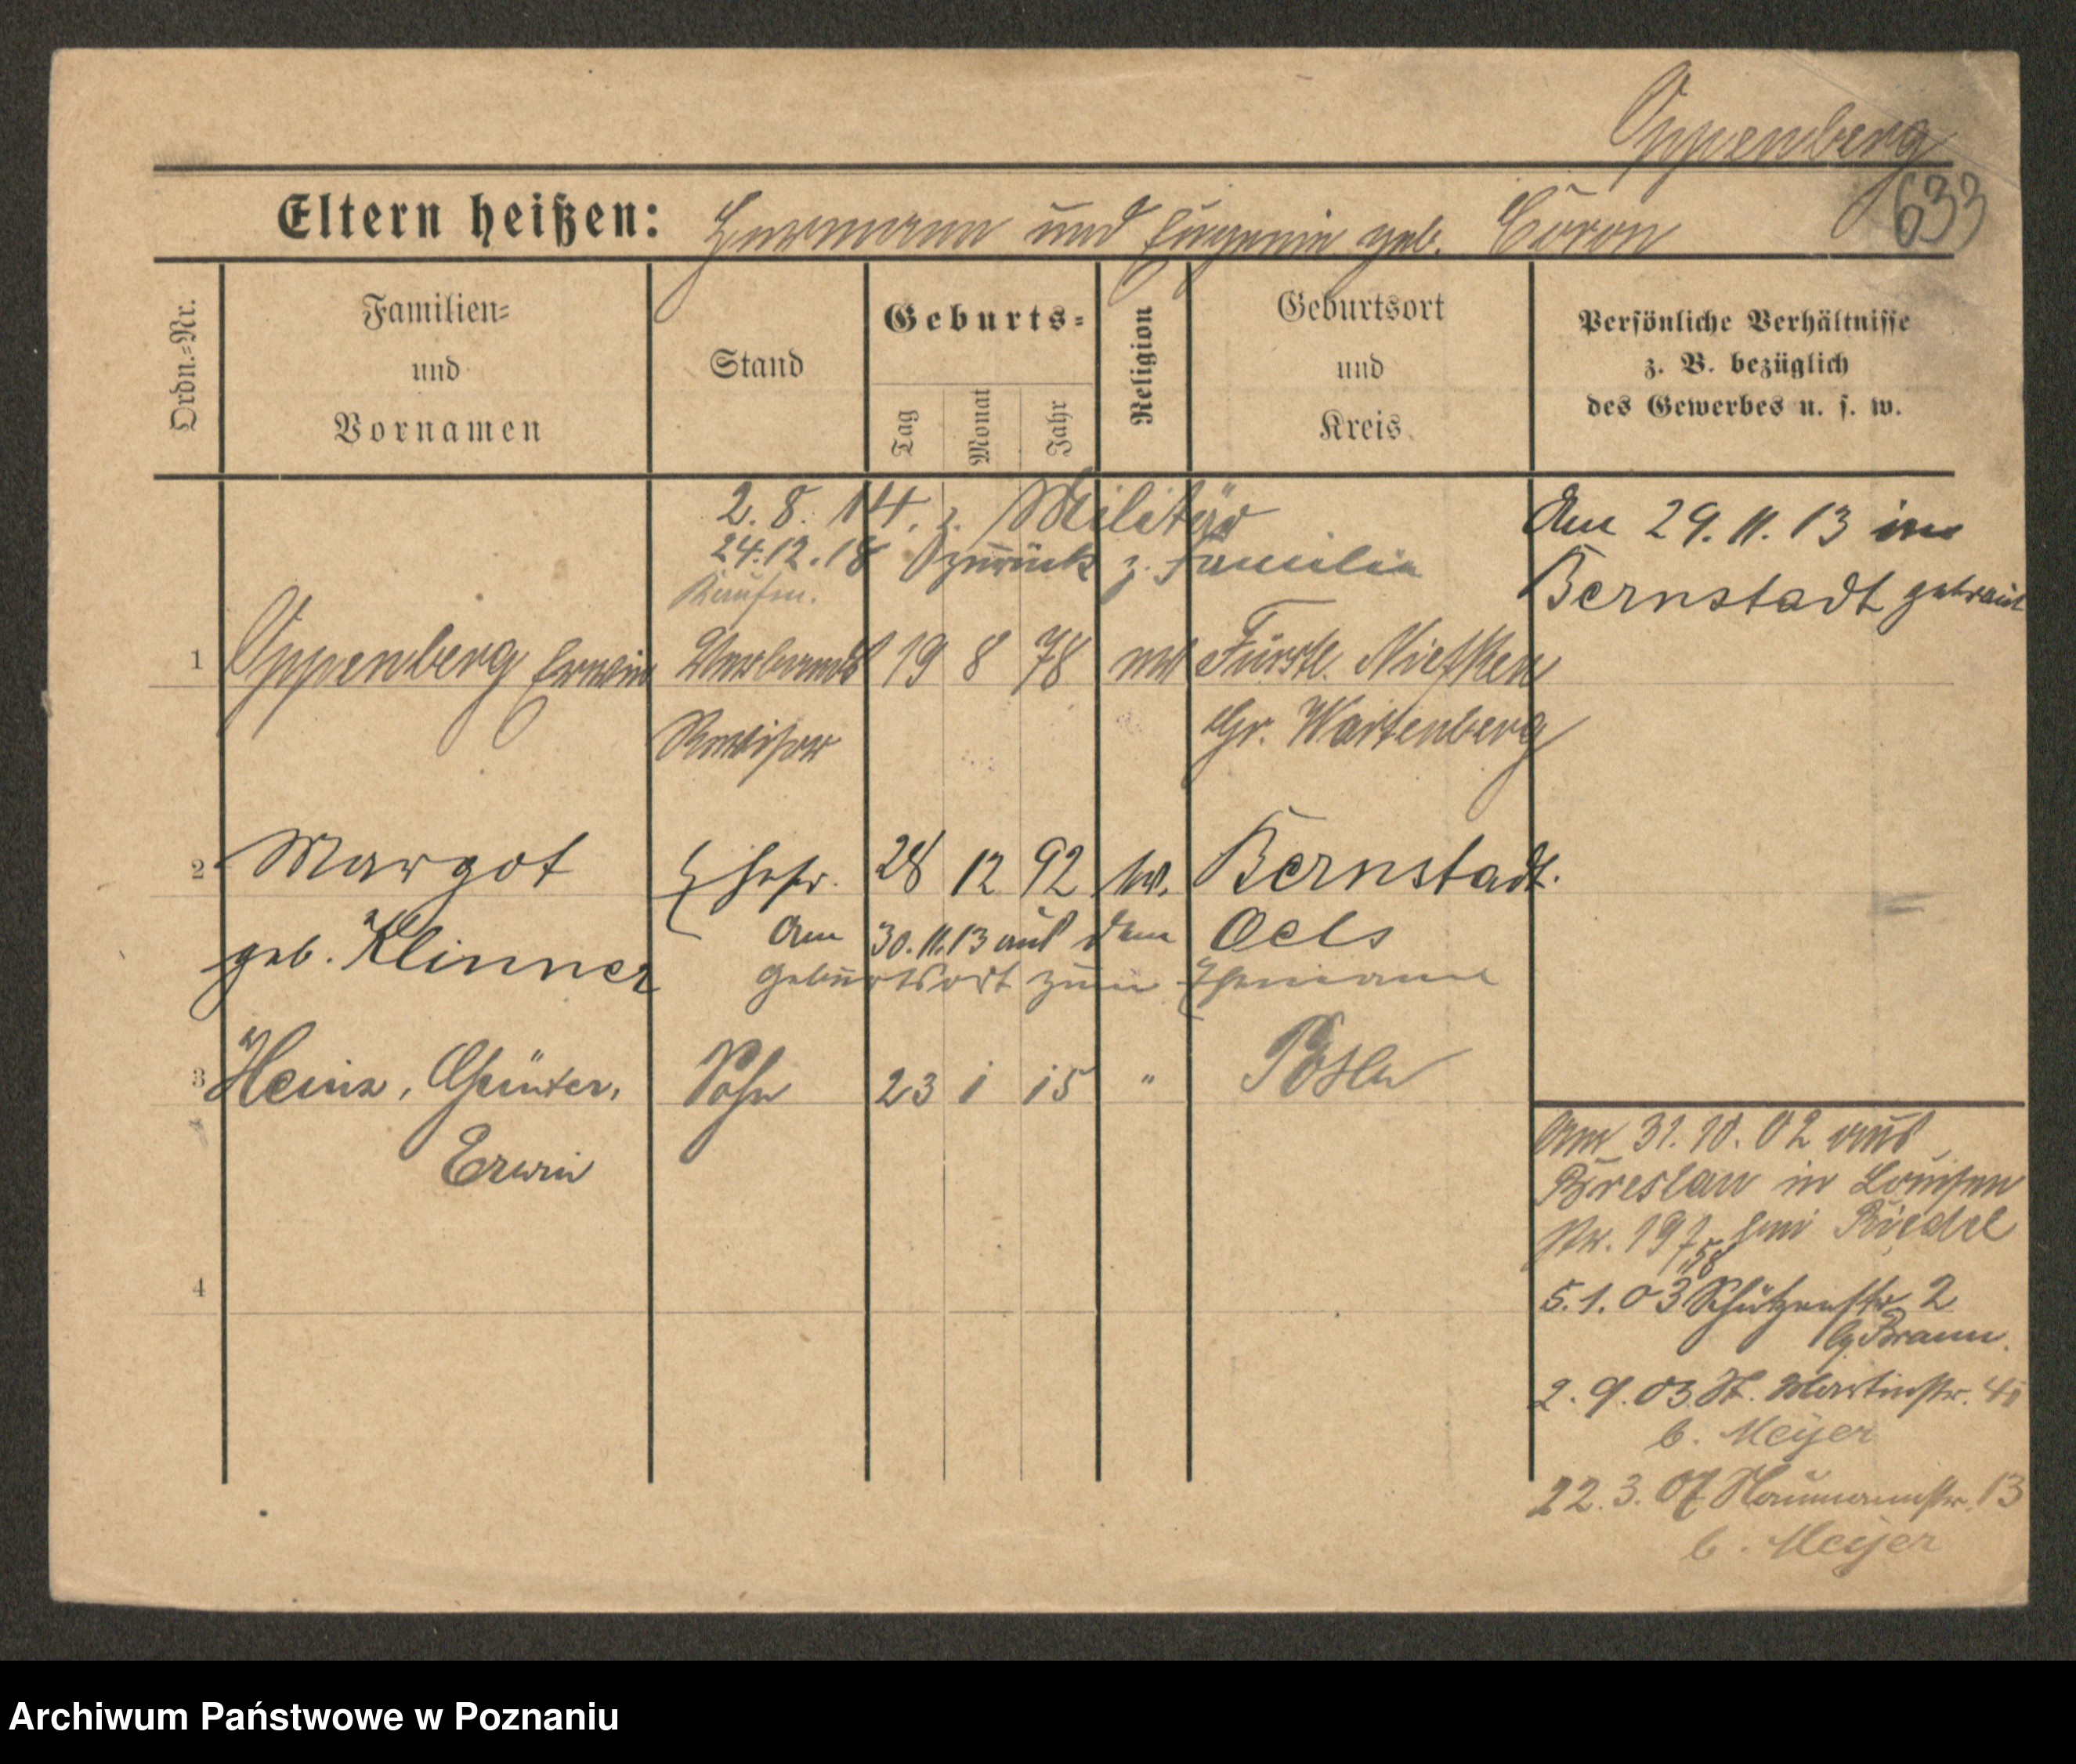 Oppenberg
633
Eltern heißen: Hermann und Eugenie geb. Coron
Ordn.=Nr.
Familien=
und
Vornamen
Stand
Geburts=
Tag
Monat
Jahr
Religion
Geburtsort
und
Kreis
Persönliche Verhältnisse
z. B. bezüglich
des Gewerbes u. s. w.
2. 8. 14. z. Militär
24.12.18 zurück z. Familie
Kaufm.
Am 29.11.13 in
Bernstadt getraut
1 Oppenberg Erwin Verbands 19 8 78 ev Fürstl. Niefken
Revisor Gr. Wartenberg
2 Margot Ehefr. 28 12 92 ev. Bernstadt.
geb. Klinner Am 30.11.13 aus dem Oels
Geburtsort zum Ehemann
3 Heinz, Günter, Sohn 23 1 15 " Posen
Erwin
4
Am 31.10.02 aus
Breslau in Louisen
str. 19 bei Riedel
5.1.03 Schützenstr 2
b Braun.
2.9.03 St. Martinstr.
b. Meyer
22.3.07 Naumannstr. 13
b. Meyer
Archiwum Państwowe w Poznaniu